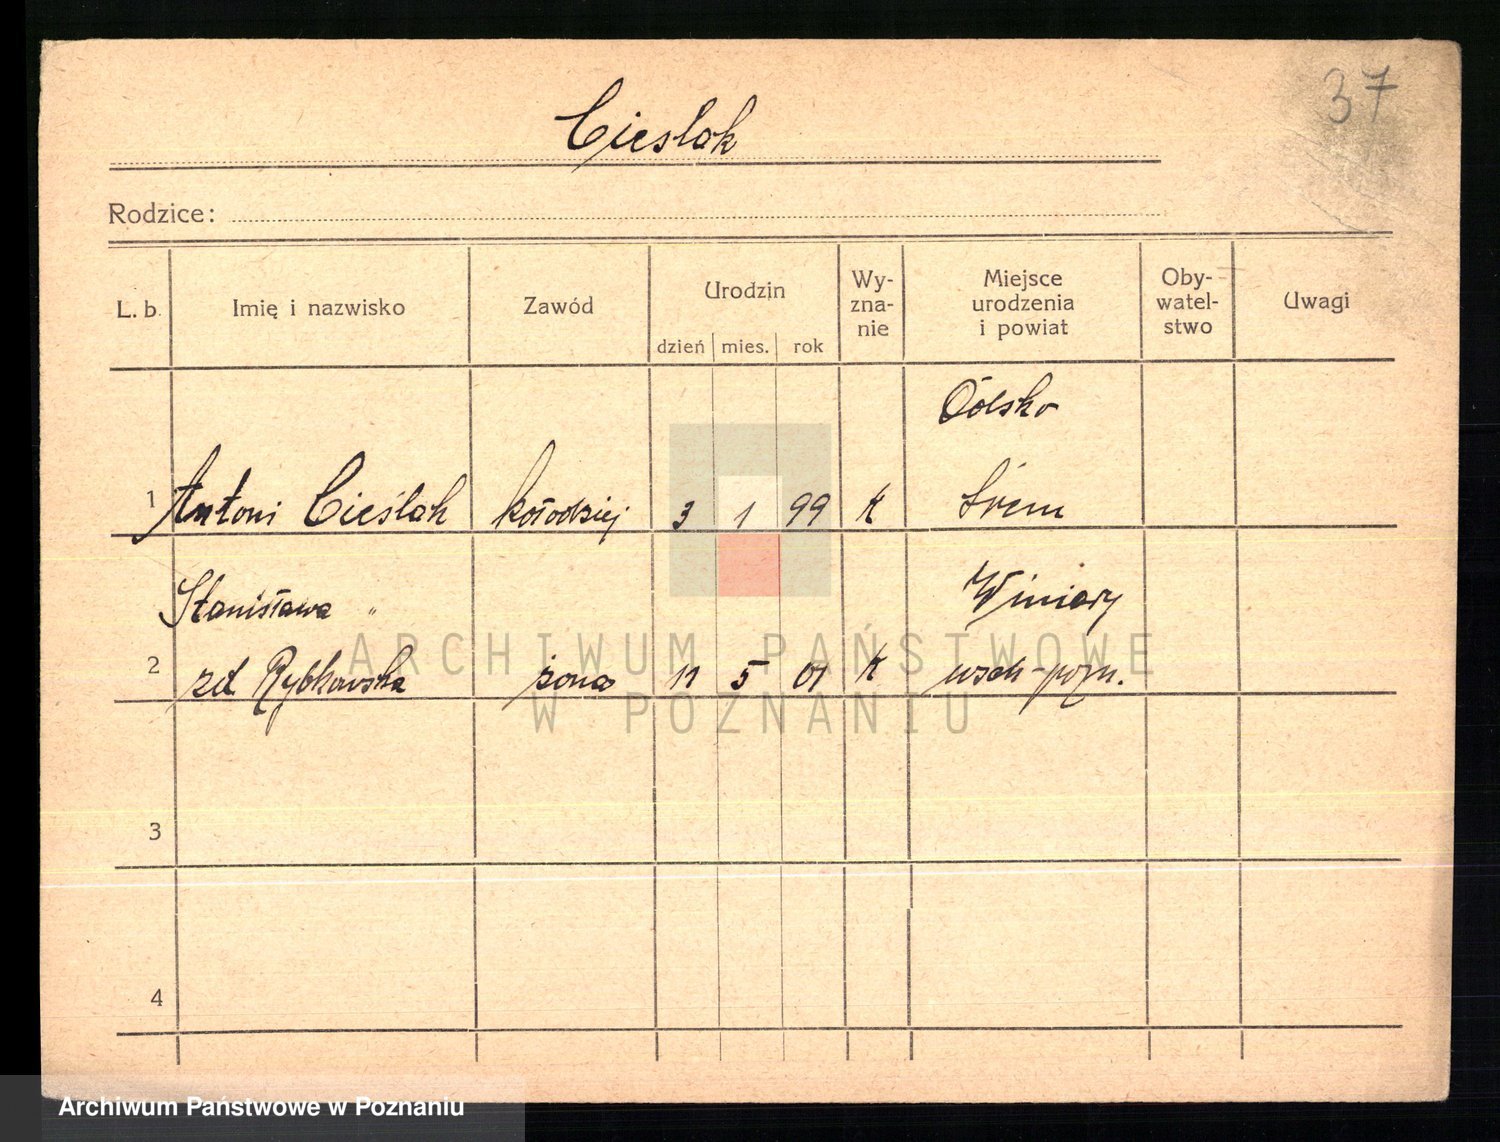 37
Cieslak
Rodzice:
L. b. Imię i nazwisko Zawód Urodzin dzień mies. rok Wy-zna-nie Miejsce urodzenia i powiat Oby-watel-stwo Uwagi
Dólsko
1 Antoni Cieślak kołodziej 3 1 99 K Śrem
Stanisława " Winiary
2 zd Rybkowska żona 11 5 01 K wsch-pozn.
3
4
ARCHIWUM PAŃSTWOWE
W POZNANIU
Archiwum Państwowe w Poznaniu